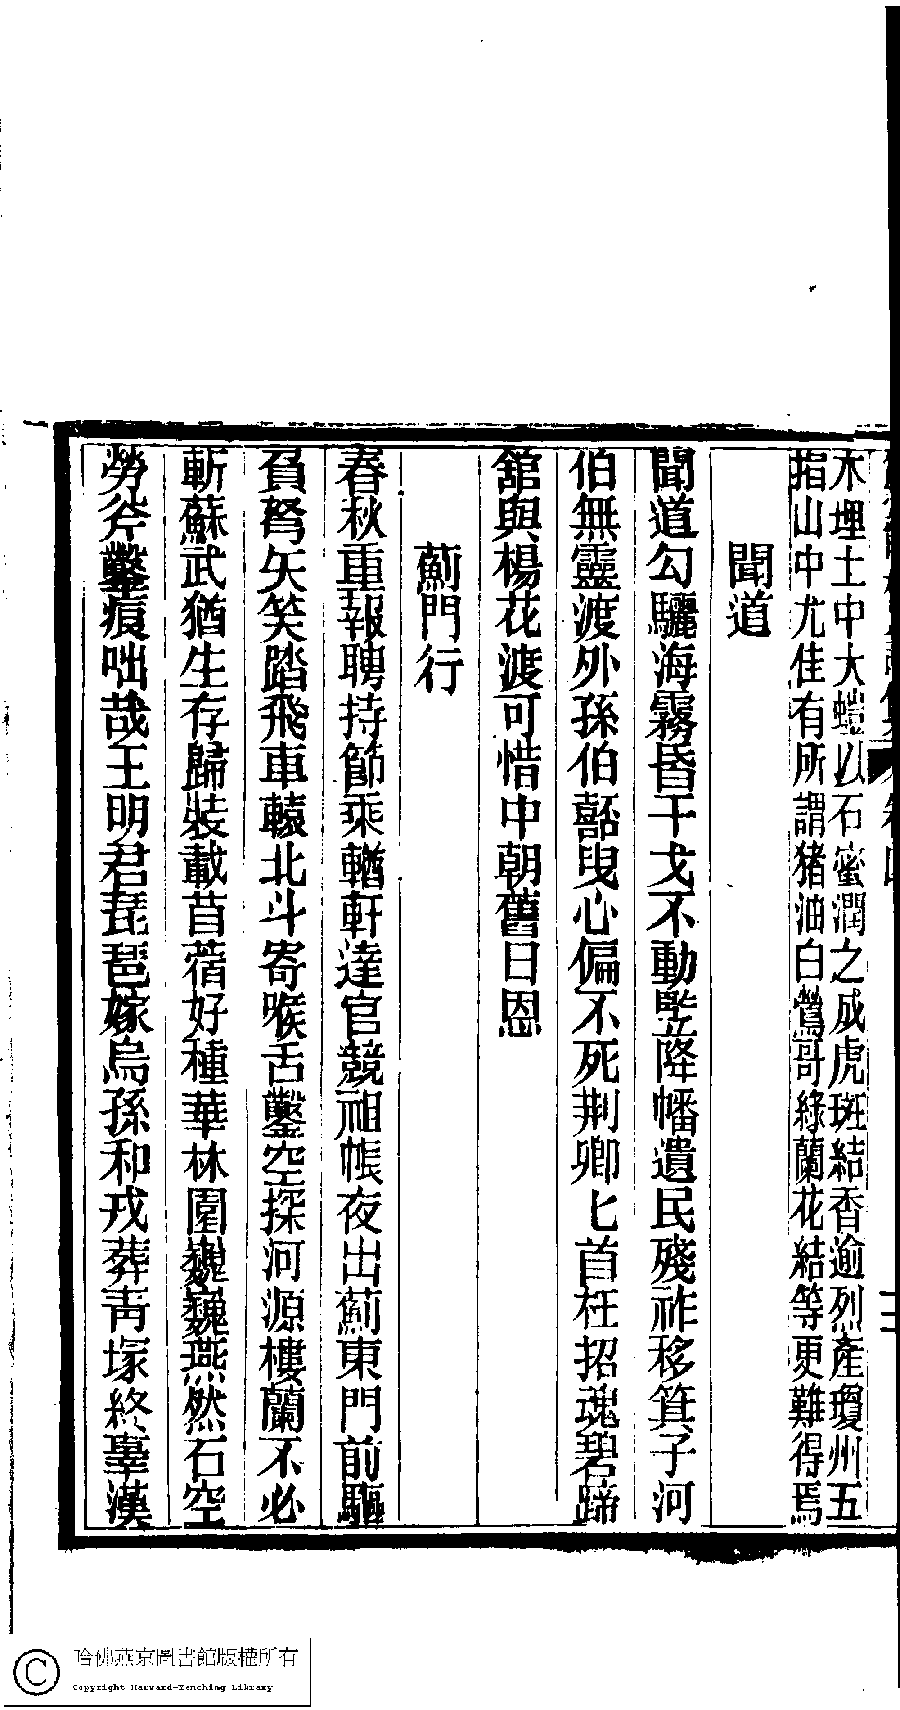 木埋土中大螘以石蜜潤之成虎斑結香逾烈產瓊州五
指山中尤佳有所謂猪油白鶯哥綠蘭花結等更難得焉
聞道
聞道勾驪海霧昏干戈不動豎降幡遺民殘祚移箕子河
伯無靈渡外孫伯嚭叟心偏不死荆卿匕首枉招魂碧蹄
舘與楊花渡可惜中朝舊日恩
薊門行
春秋重報聘持節乘輶軒達官競祖帳夜出薊東門前驅
負弩矢笑踏飛車轅北斗寄喉舌鑿空探河源樓蘭不必
斬蘇武猶生存歸裝載苜蓿好種華林園巍巍燕然石空
勞斧鑿痕咄哉王明君琵琶嫁烏孫和戎葬靑塚終辜漢
哈佛燕京圖書館版權所有
Copyright Harvard-Yenching Library